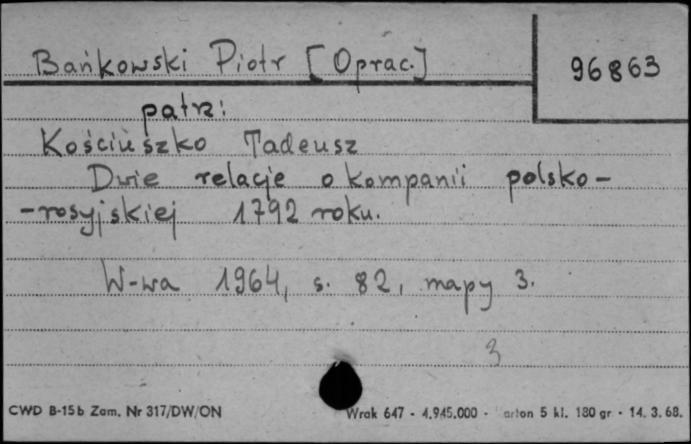 Bańkowski Piotr [Oprac.]
96863
patrz:
Kościuszko Tadeusz
Dwie relacje o kompanii polsko-
-rosyjskiej 1792 roku.
W-wa 1964, s. 82, mapy 3.
3
CWD B-15b Zam. Nr 317/DW/ON
Wrak 647 - 4.945.000 - arton 5 kl. 180 gr - 14. 3. 68.